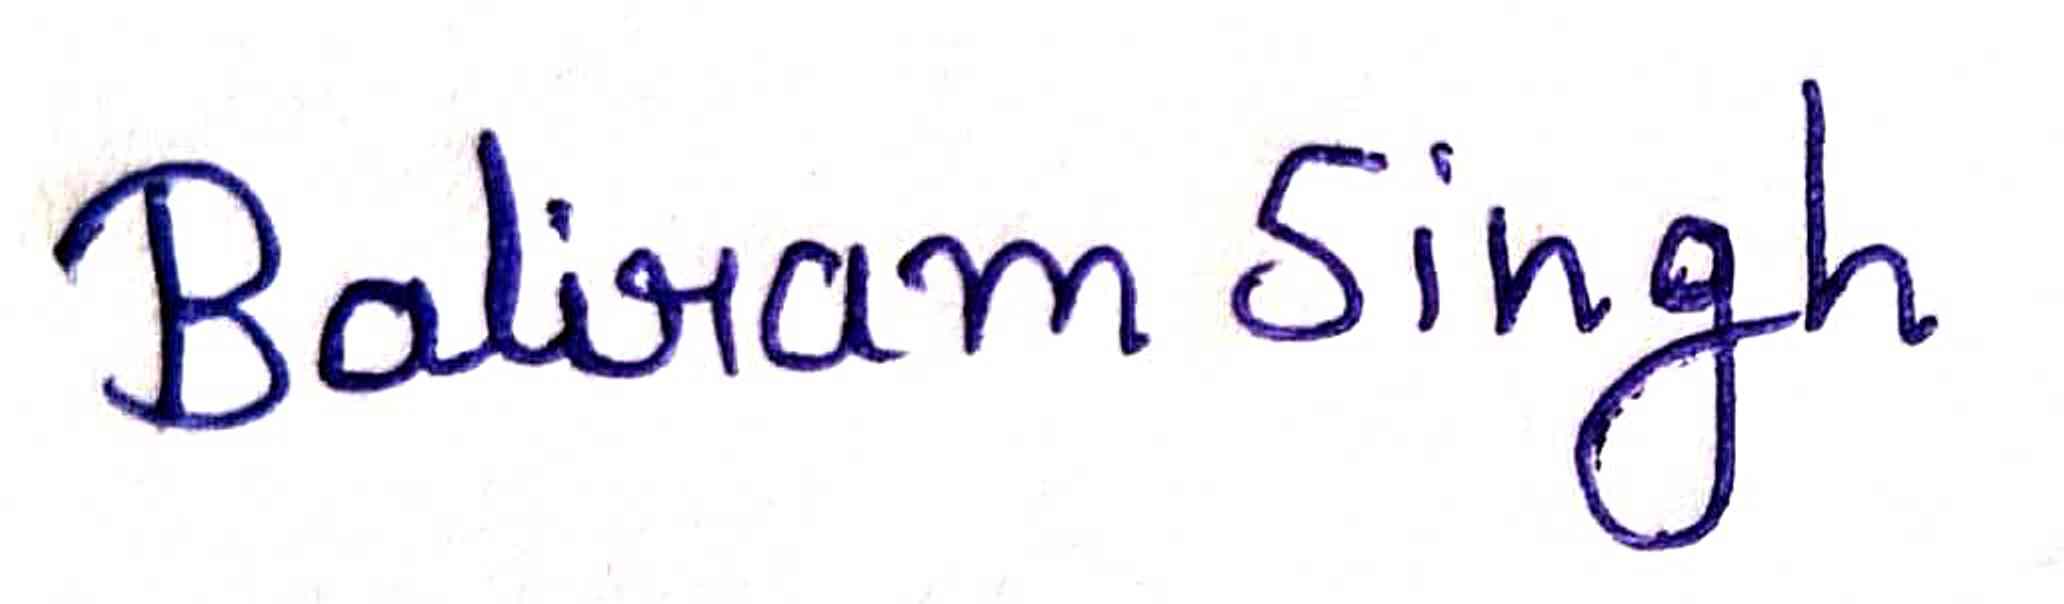 Baliram Singh